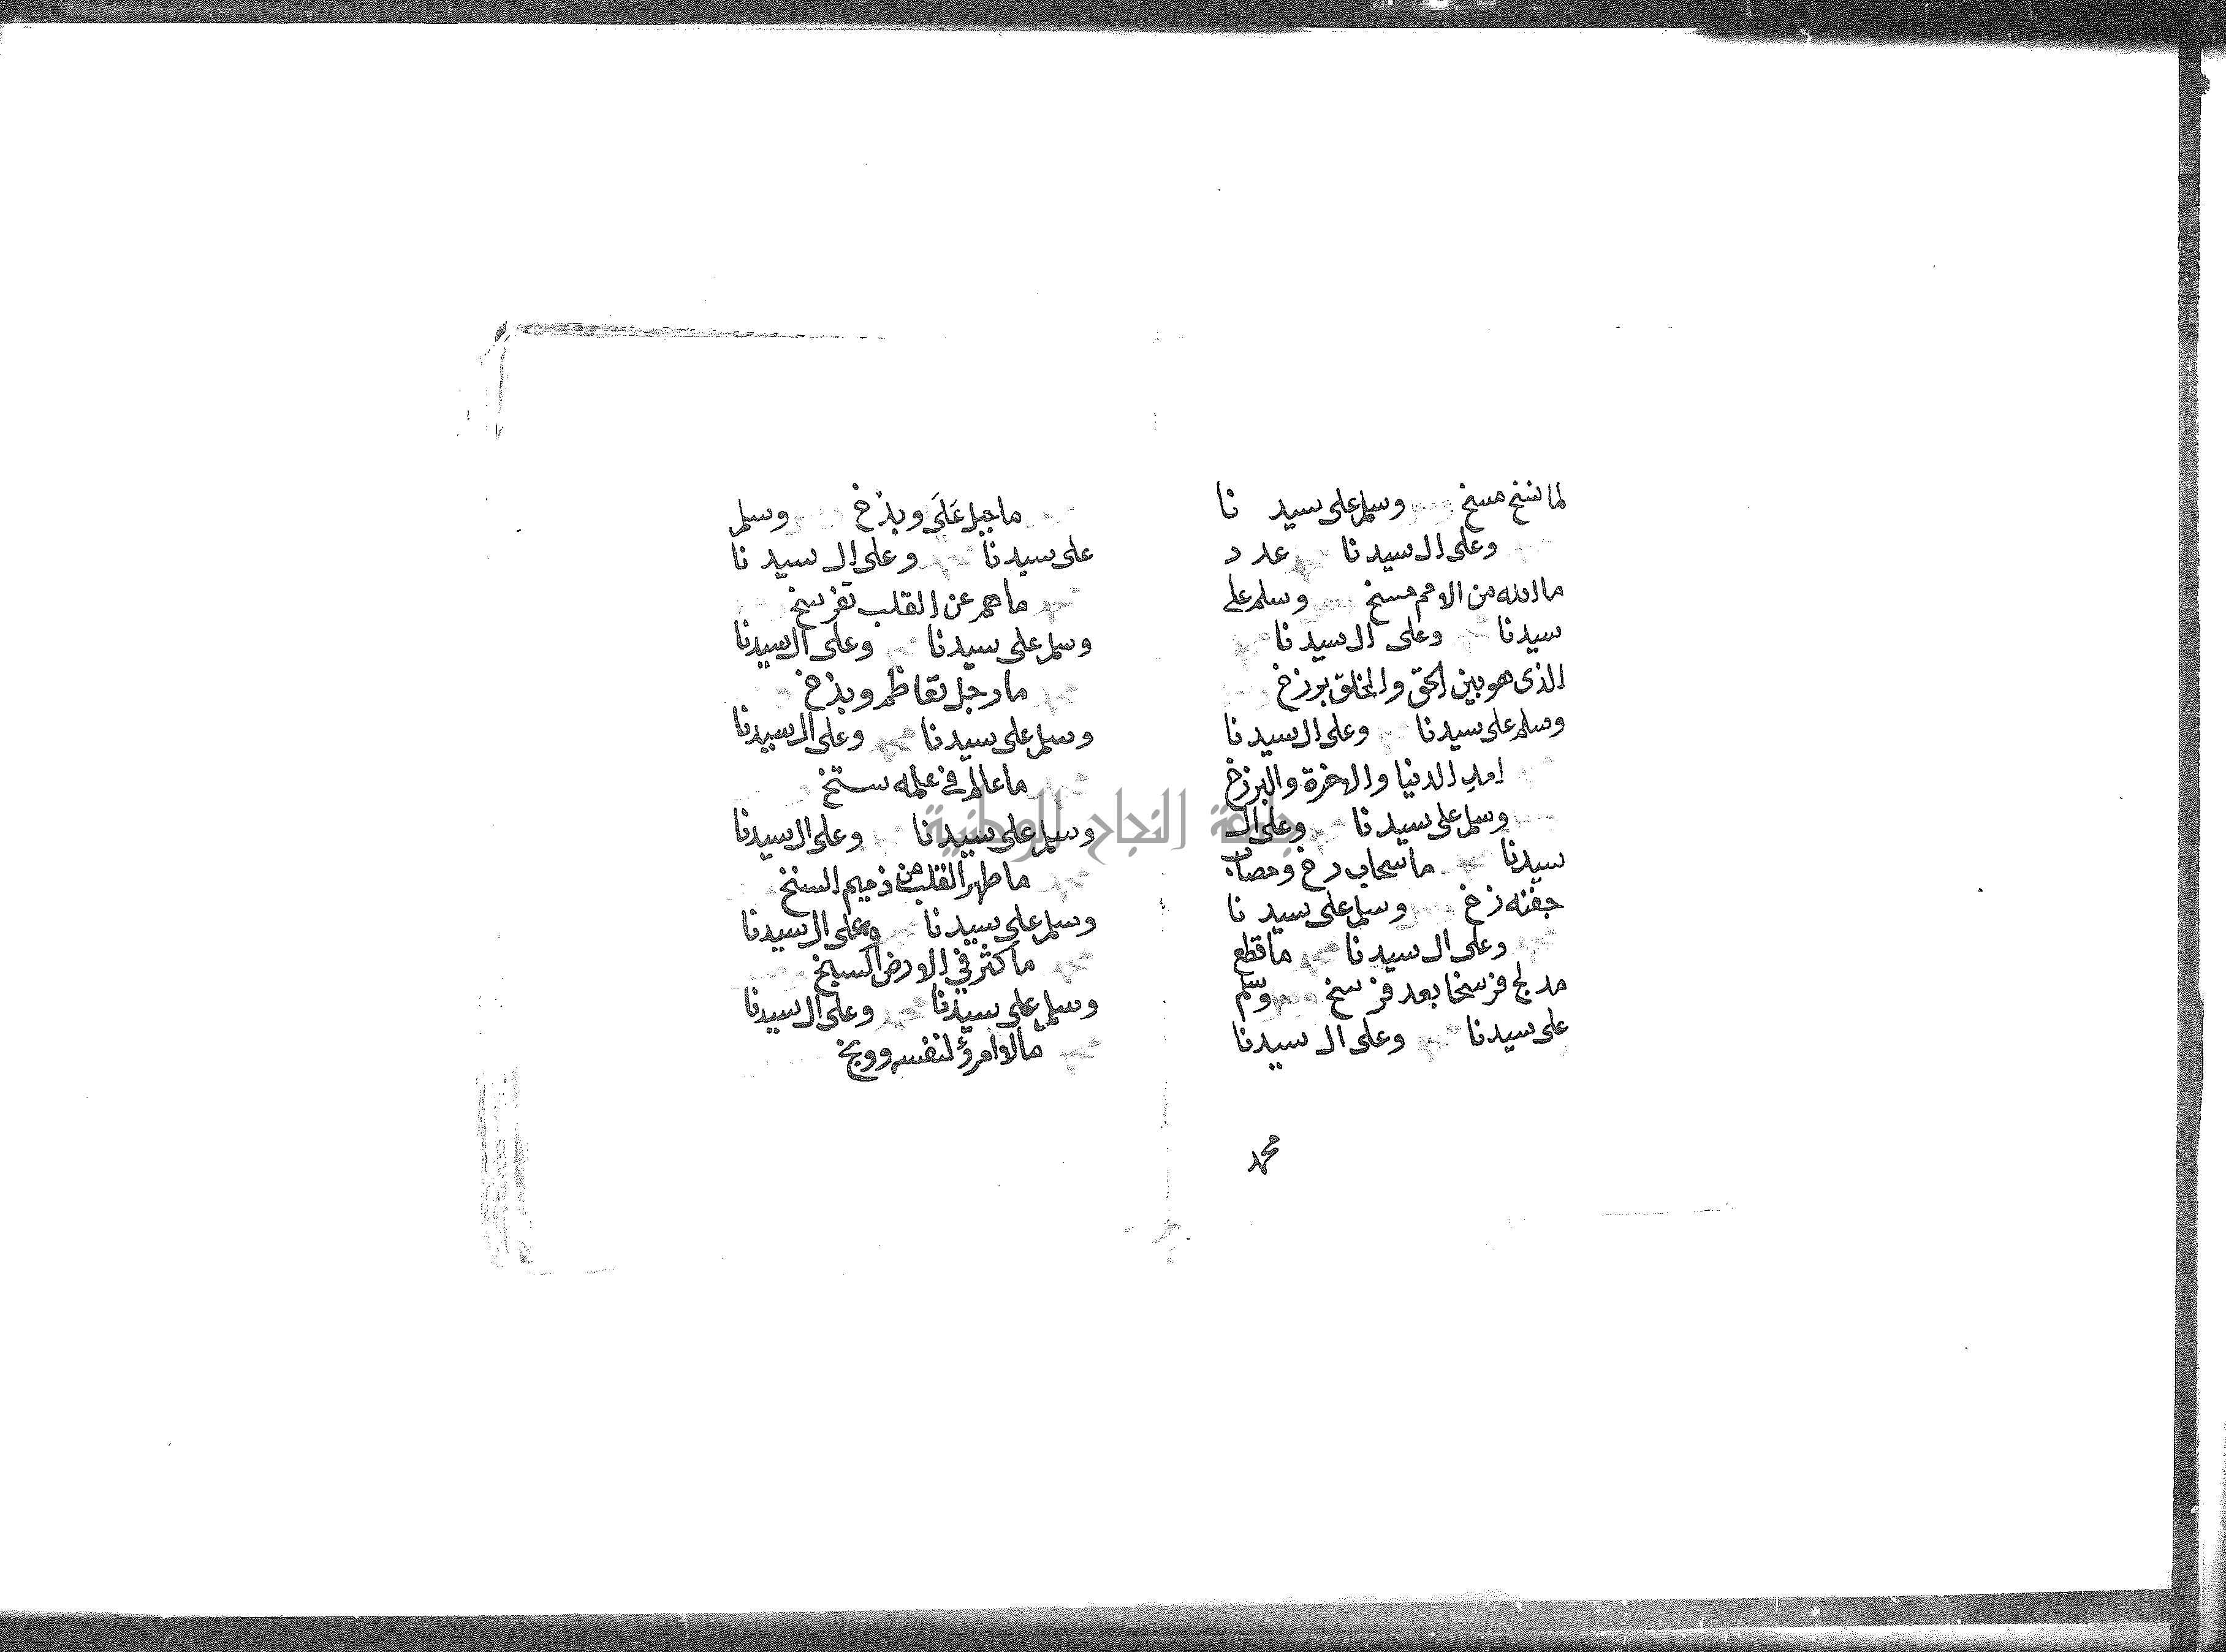 لما نسخ مسخ وسلم على سيد نا
وعلى ال سيد نا عدد
ما الله من الامم مسخ وسلم على
سيدنا وعلى ال سيد نا
الذى هو بين الحق والخلق برزخ
وسلم على سيدنا وعلى ال سيد نا
امد الدنيا والاخرة والبرزخ
وسلم على سيدنا وعلى ال
سيدنا ما سحاب رخ ومصاب
جفنه زخ وسلم على سيد نا
وعلى ال سيدنا ما قطع
مدلج فرسخا بعد فرسخ وسلم
على سيدنا وعلى ال سيدنا
محمد
ما جبل عَلَى وبذخ وسلم
على سيدنا وعلى ال سيد نا
ما هم عن القلب تفرسخ
وسلم على سيدنا وعلى ال سيدنا
ما رجل تعاظم وبذخ
وسلم على سيدنا وعلى ال سيدنا
ما عالم في علمه ستخ
وسلم على سيدنا وعلى ال سيدنا
ما طهر القلب من ذميم السنخ
وسلم على سيدنا وعلى ال سيدنا
ما كثر في الارض السبخ
وسلم على سيدنا وعلى ال سيدنا
ما لام امرؤ لنفسه ووبخ
جامعة النجاح الوطنية